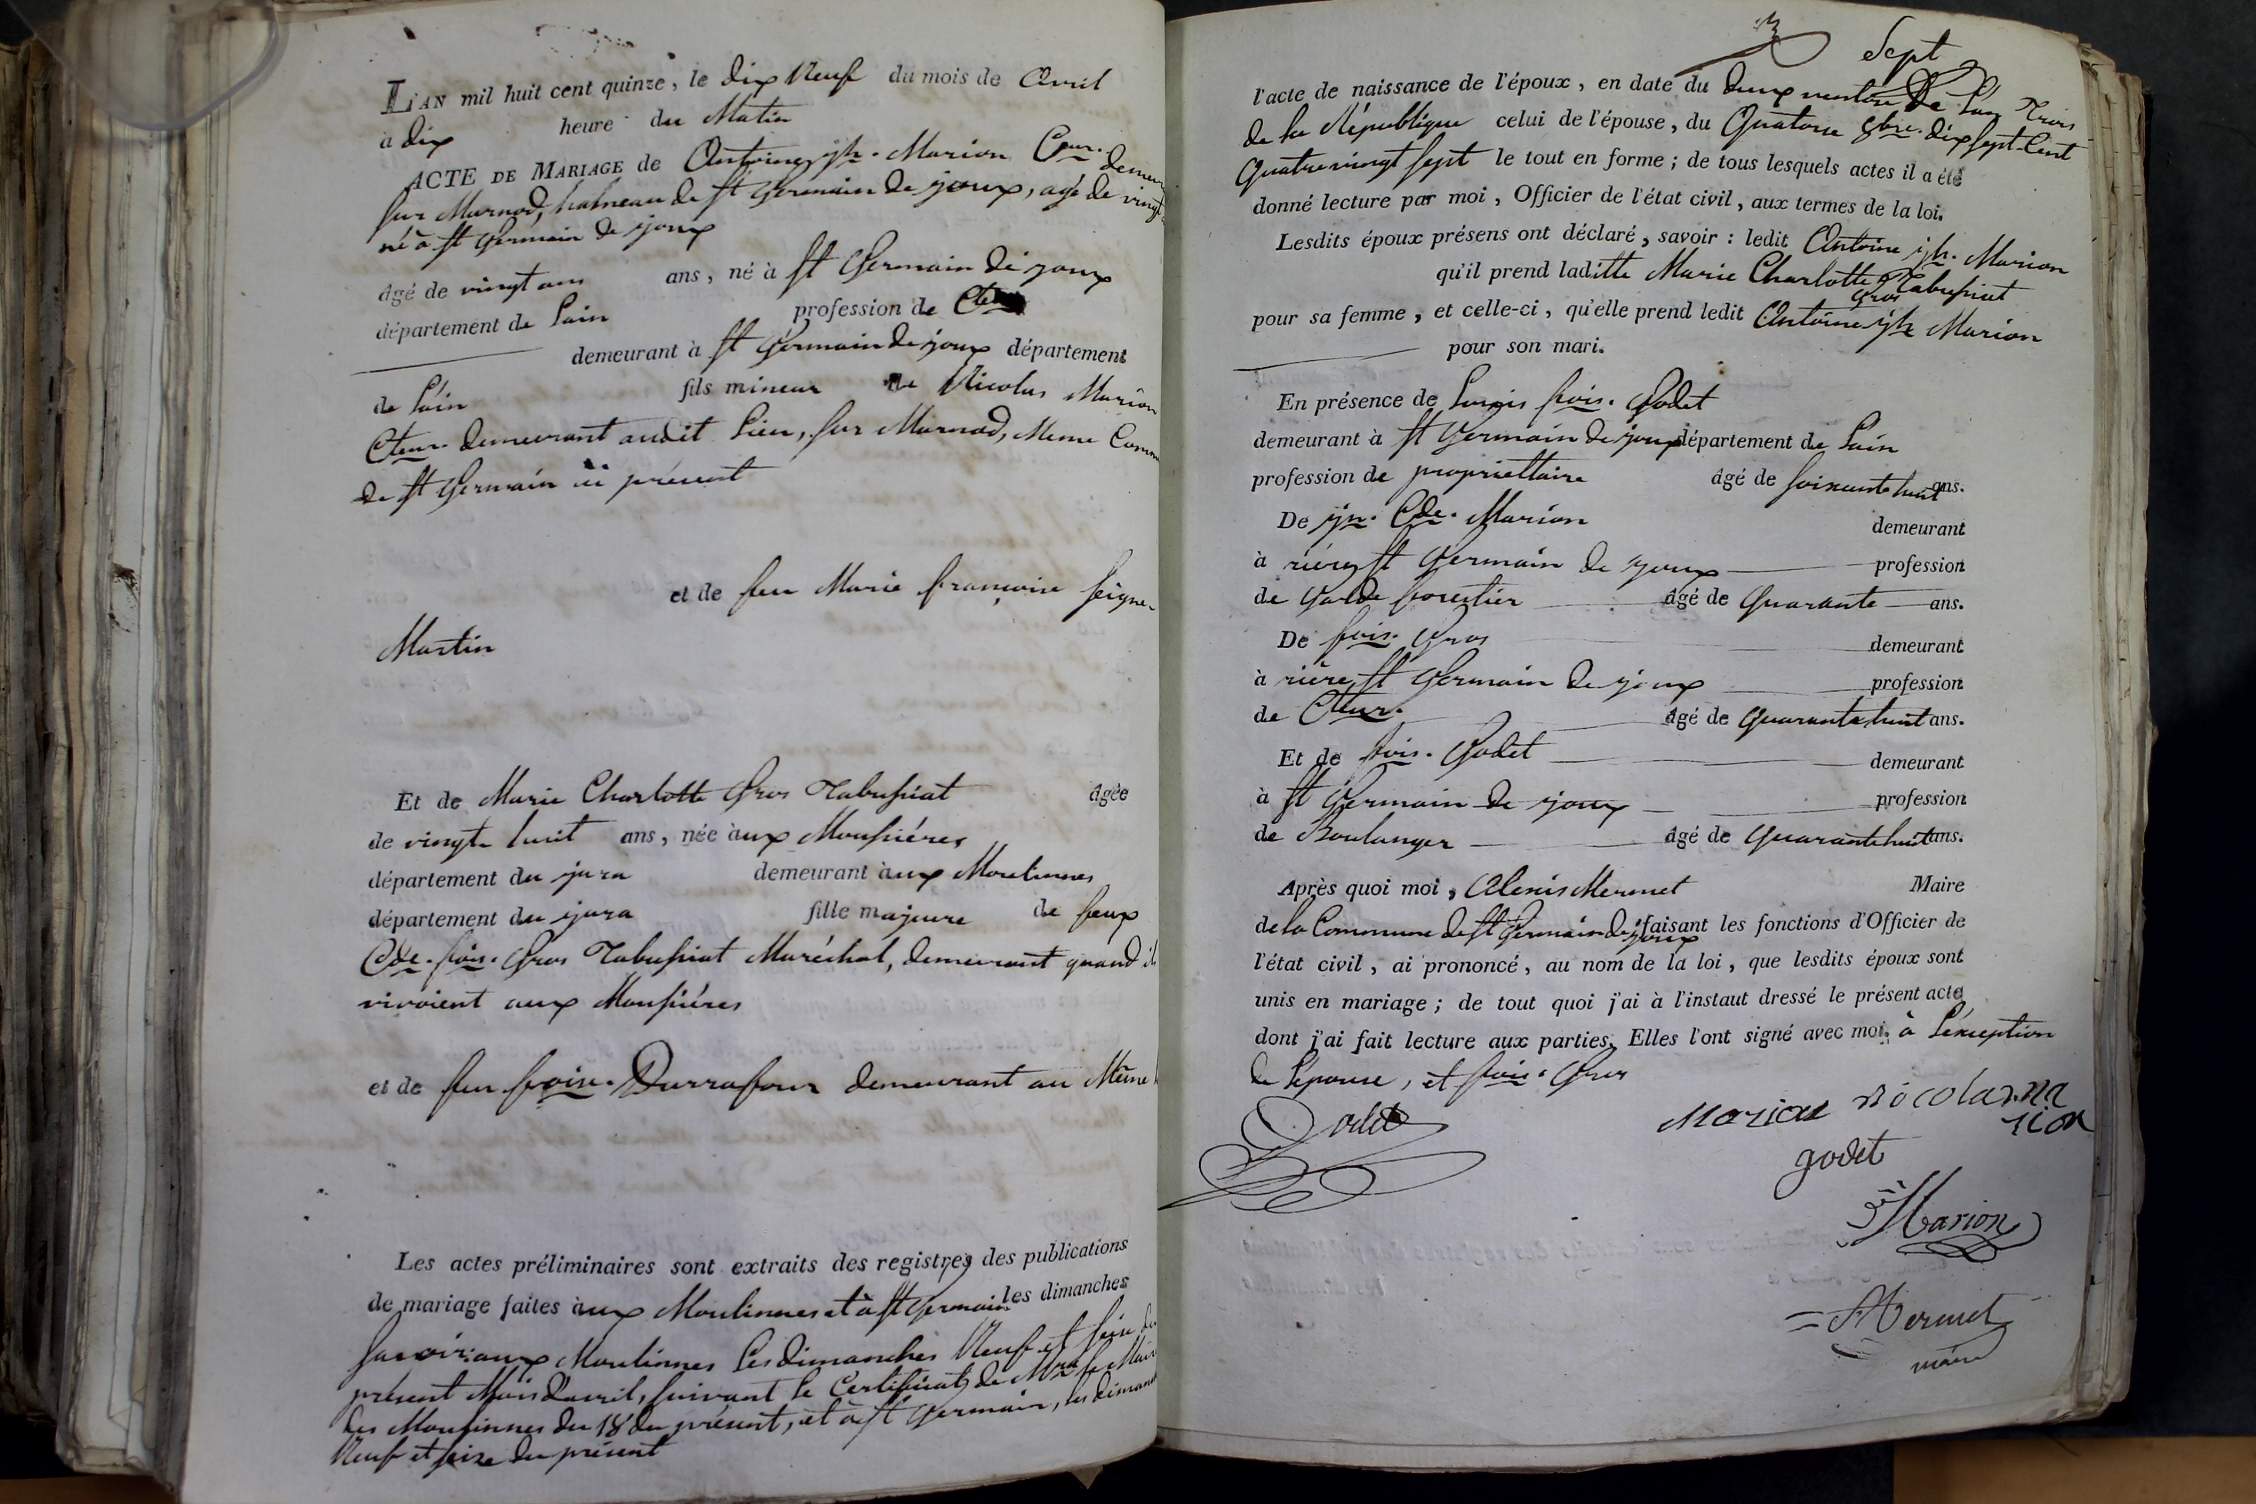 L'AN mil huit cent quinze, le dix Neuf du mois de Avril
à dix heure du Matin
ACTE DE MARIAGE de Antoine jh. Marion Cteur. demeu
sur Marnod, hameau de St Germain de joux, agé de vingt
né à St Germain de joux
âgé de vingt ans ans, né à St Germain de joux
département de Lain profession de
demeurant à St Germain de joux département
de Lain fils mineur de Nicolas Marion
Cteur. demeurant audit Lieu, sur Marnod, Meme Comm
de St Germain ici présent
et de feu Marie françoise Seigne-
Martin
Et de Marie Charlotte Gros Tabussiat âgée
de vingt huit ans, née à ux Moussiéres
département du jura demeurant à ux Moulinnes
département du jura fille majeure de feux
Cde. fois. Gros Tabussiat Maréchal, demeurant quand il
vivoient aux Moussiéres
et de feu foise. Durrafour demeurant au Même
Les actes préliminaires sont extraits des registres des publications
de mariage faites à ux Moulinnes et à St Germain les dimanches
Savoir: aux Moulinnes Les dimanches Neuf et seize du
présent Mois d'avril, suivant le Certificat de Mr. le Maire
des Moulinnes du 18 du présent, et à St Germain, les dimanch
Neuf et seize du présent
Sept
l'acte de naissance de l'époux, en date du Deux ventose De L'an Trois
de la République celui de l'épouse, du Quatorse 8bre. dix sept-Cent
Quatrevingt sept le tout en forme; de tous lesquels actes il a été
donné lecture par moi, Officier de l'état civil, aux termes de la loi.
Lesdits époux présens ont déclaré, savoir : ledit Antoine jh. Marion
qu'il prend laditte Marie Charlotte Tabussiat
Gros
pour sa femme, et celle-ci, qu'elle prend ledit Antoine jh Marion
pour son mari.
En présence de Louis fois. Godet
demeurant à St Germain de joux département de Lain
profession de propriettaire âgé de soixante huit ans.
De jn. Cde. Marion demeurant
à riere St Germain de joux profession
de Garde forestier âgé de Quarante ans.
De fois. Gros demeurant
à riere St Germain de joux profession
de Cteur. âgé de Quarante huit ans.
Et de fois. Godet demeurant
à St Germain de joux profession
de Boulanger âgé de Quarante huit ans.
Après quoi moi, Alexis Mermet Maire
de la Commune de St Germain de joux faisant les fonctions d'Officier de
l'état civil, ai prononcé, au nom de la loi, que lesdits époux sont
unis en mariage; de tout quoi j'ai à l'instaut dressé le présent acte
dont j'ai fait lecture aux parties. Elles l'ont signé avec moi, à L'éxception
de L'épouse, et fois. Gros
Godet
Marion nicolas ma
rion
godet
Marion
Mermet
maire